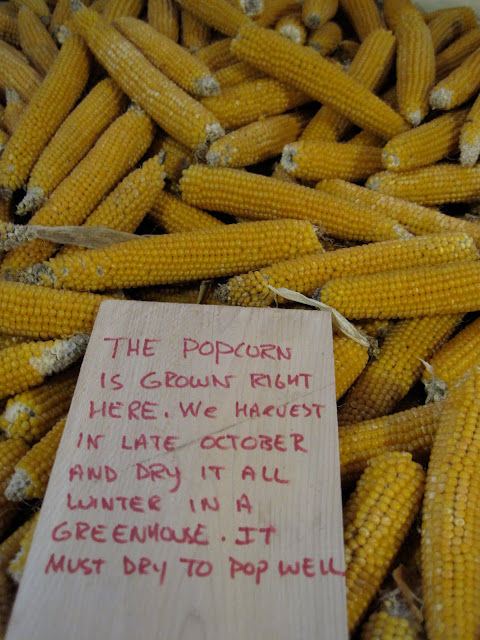 THE POPCORN
IS GROWN RIGHT
HERE. WE HARVEST
IN LATE OCTOBER
AND DRY IT ALL
WINTER IN A
GREENHOUSE. IT
MUST DRY TO POP WELL